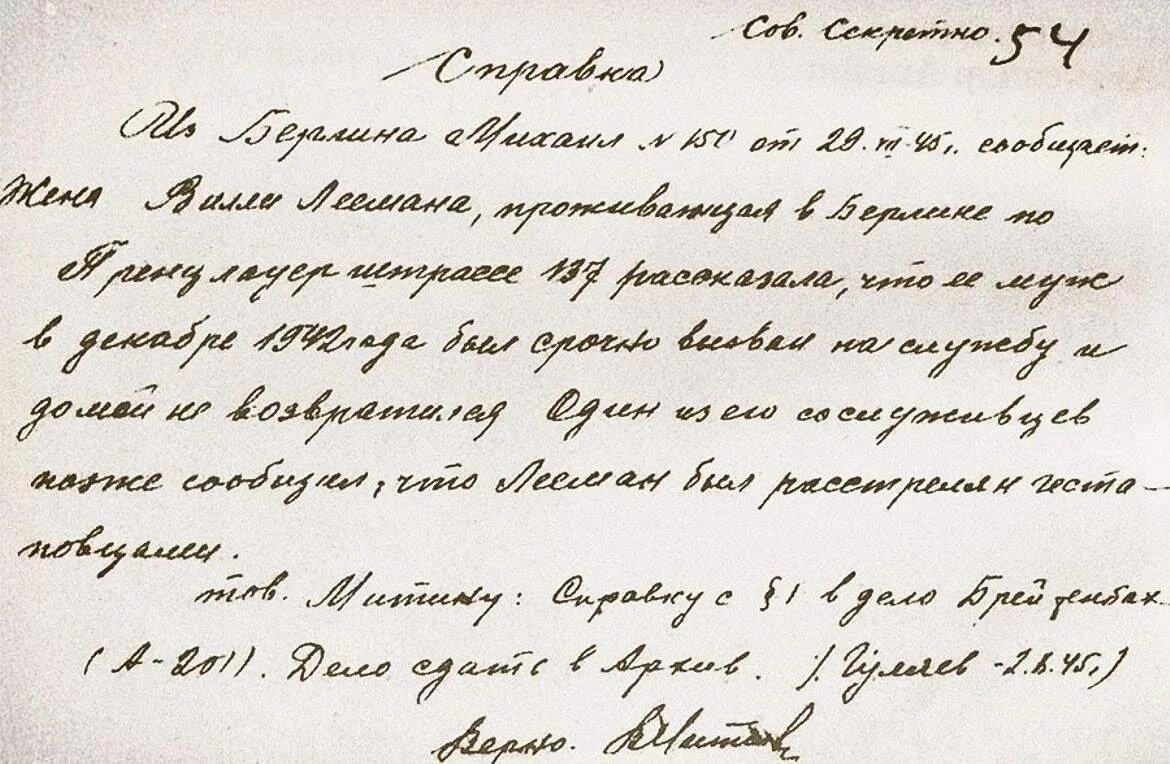 Сов. Секретно. 54
Справка
Из Берлина Михаил № 151 от 29. VII 45г. сообщает:
Жена Вилли Леемана, проживающая в Берлине по
Пренцлауер штрассе 137 рассказала, что ее муж
в декабре 1942 года был срочно вызван на службу и
домой не возвратился Один из его сослуживцев
позже сообщил, что Лееман был расстрелян геста-
повцами.
тов. Митину: Справку с §1 в дело Брейтенбах
(А-201). Дело сдать в Архив. /. Гуляев -2. 45г/
Верно.